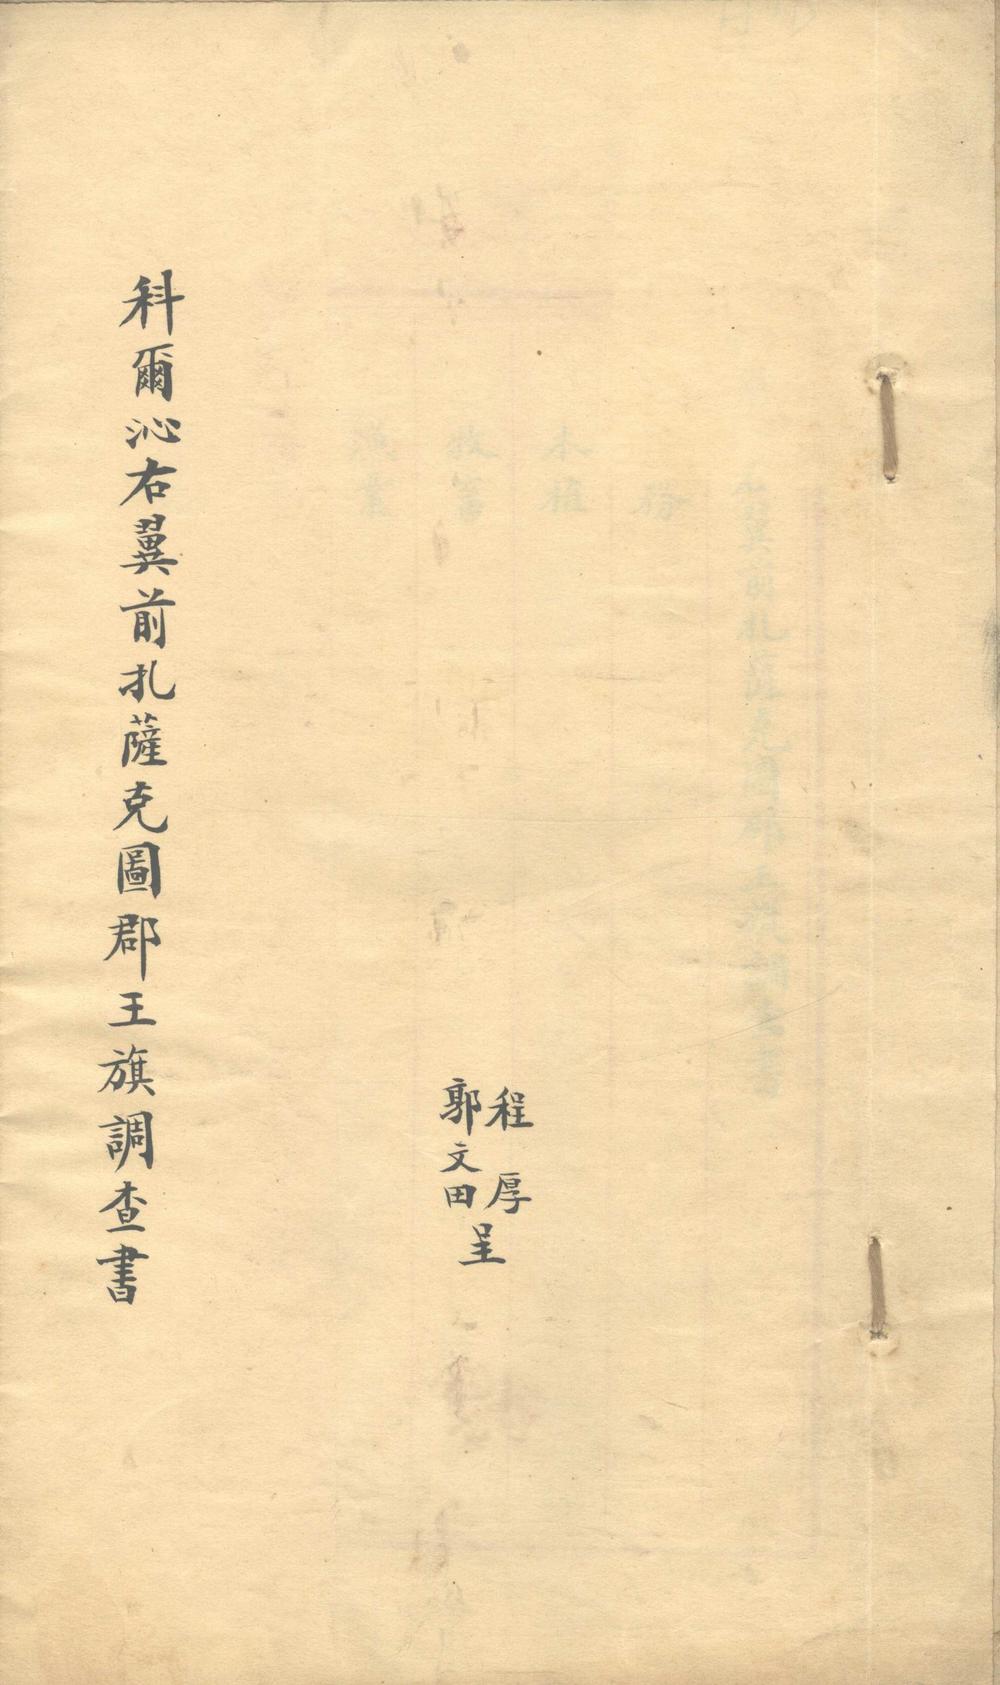 程厚
郭文田
呈
科爾沁右翼前扎薩克圖郡王旗調查書